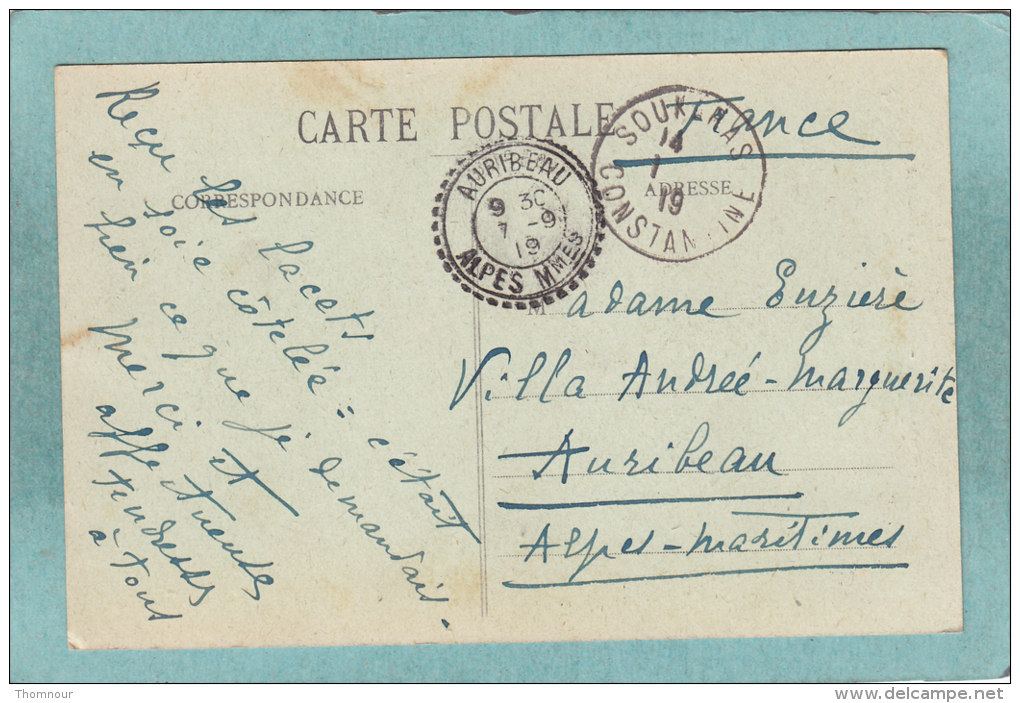 CARTE POSTALE
France
CORRESPONDANCE
ADRESSE
AURIBEAU
9 30
7 -9
19
ALPES MMES
SOUK-AHRAS
14
1
19
CONSTANTINE
Reçu les lacets
en soie côtelée = c'était
bien ce que je demandais.
Merci et
affectueuses
tendresses
à tous
Madame Enzière
Villa Andrée-Marguerite
Auribeau
Alpes-Maritimes
Thomnour
www.delcampe.net